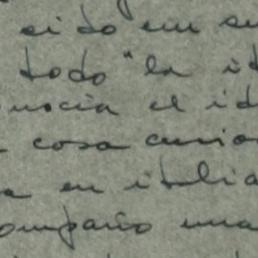 sido en su
todo "la it
onocia el id
cosa curio
a en italia
ompaño una